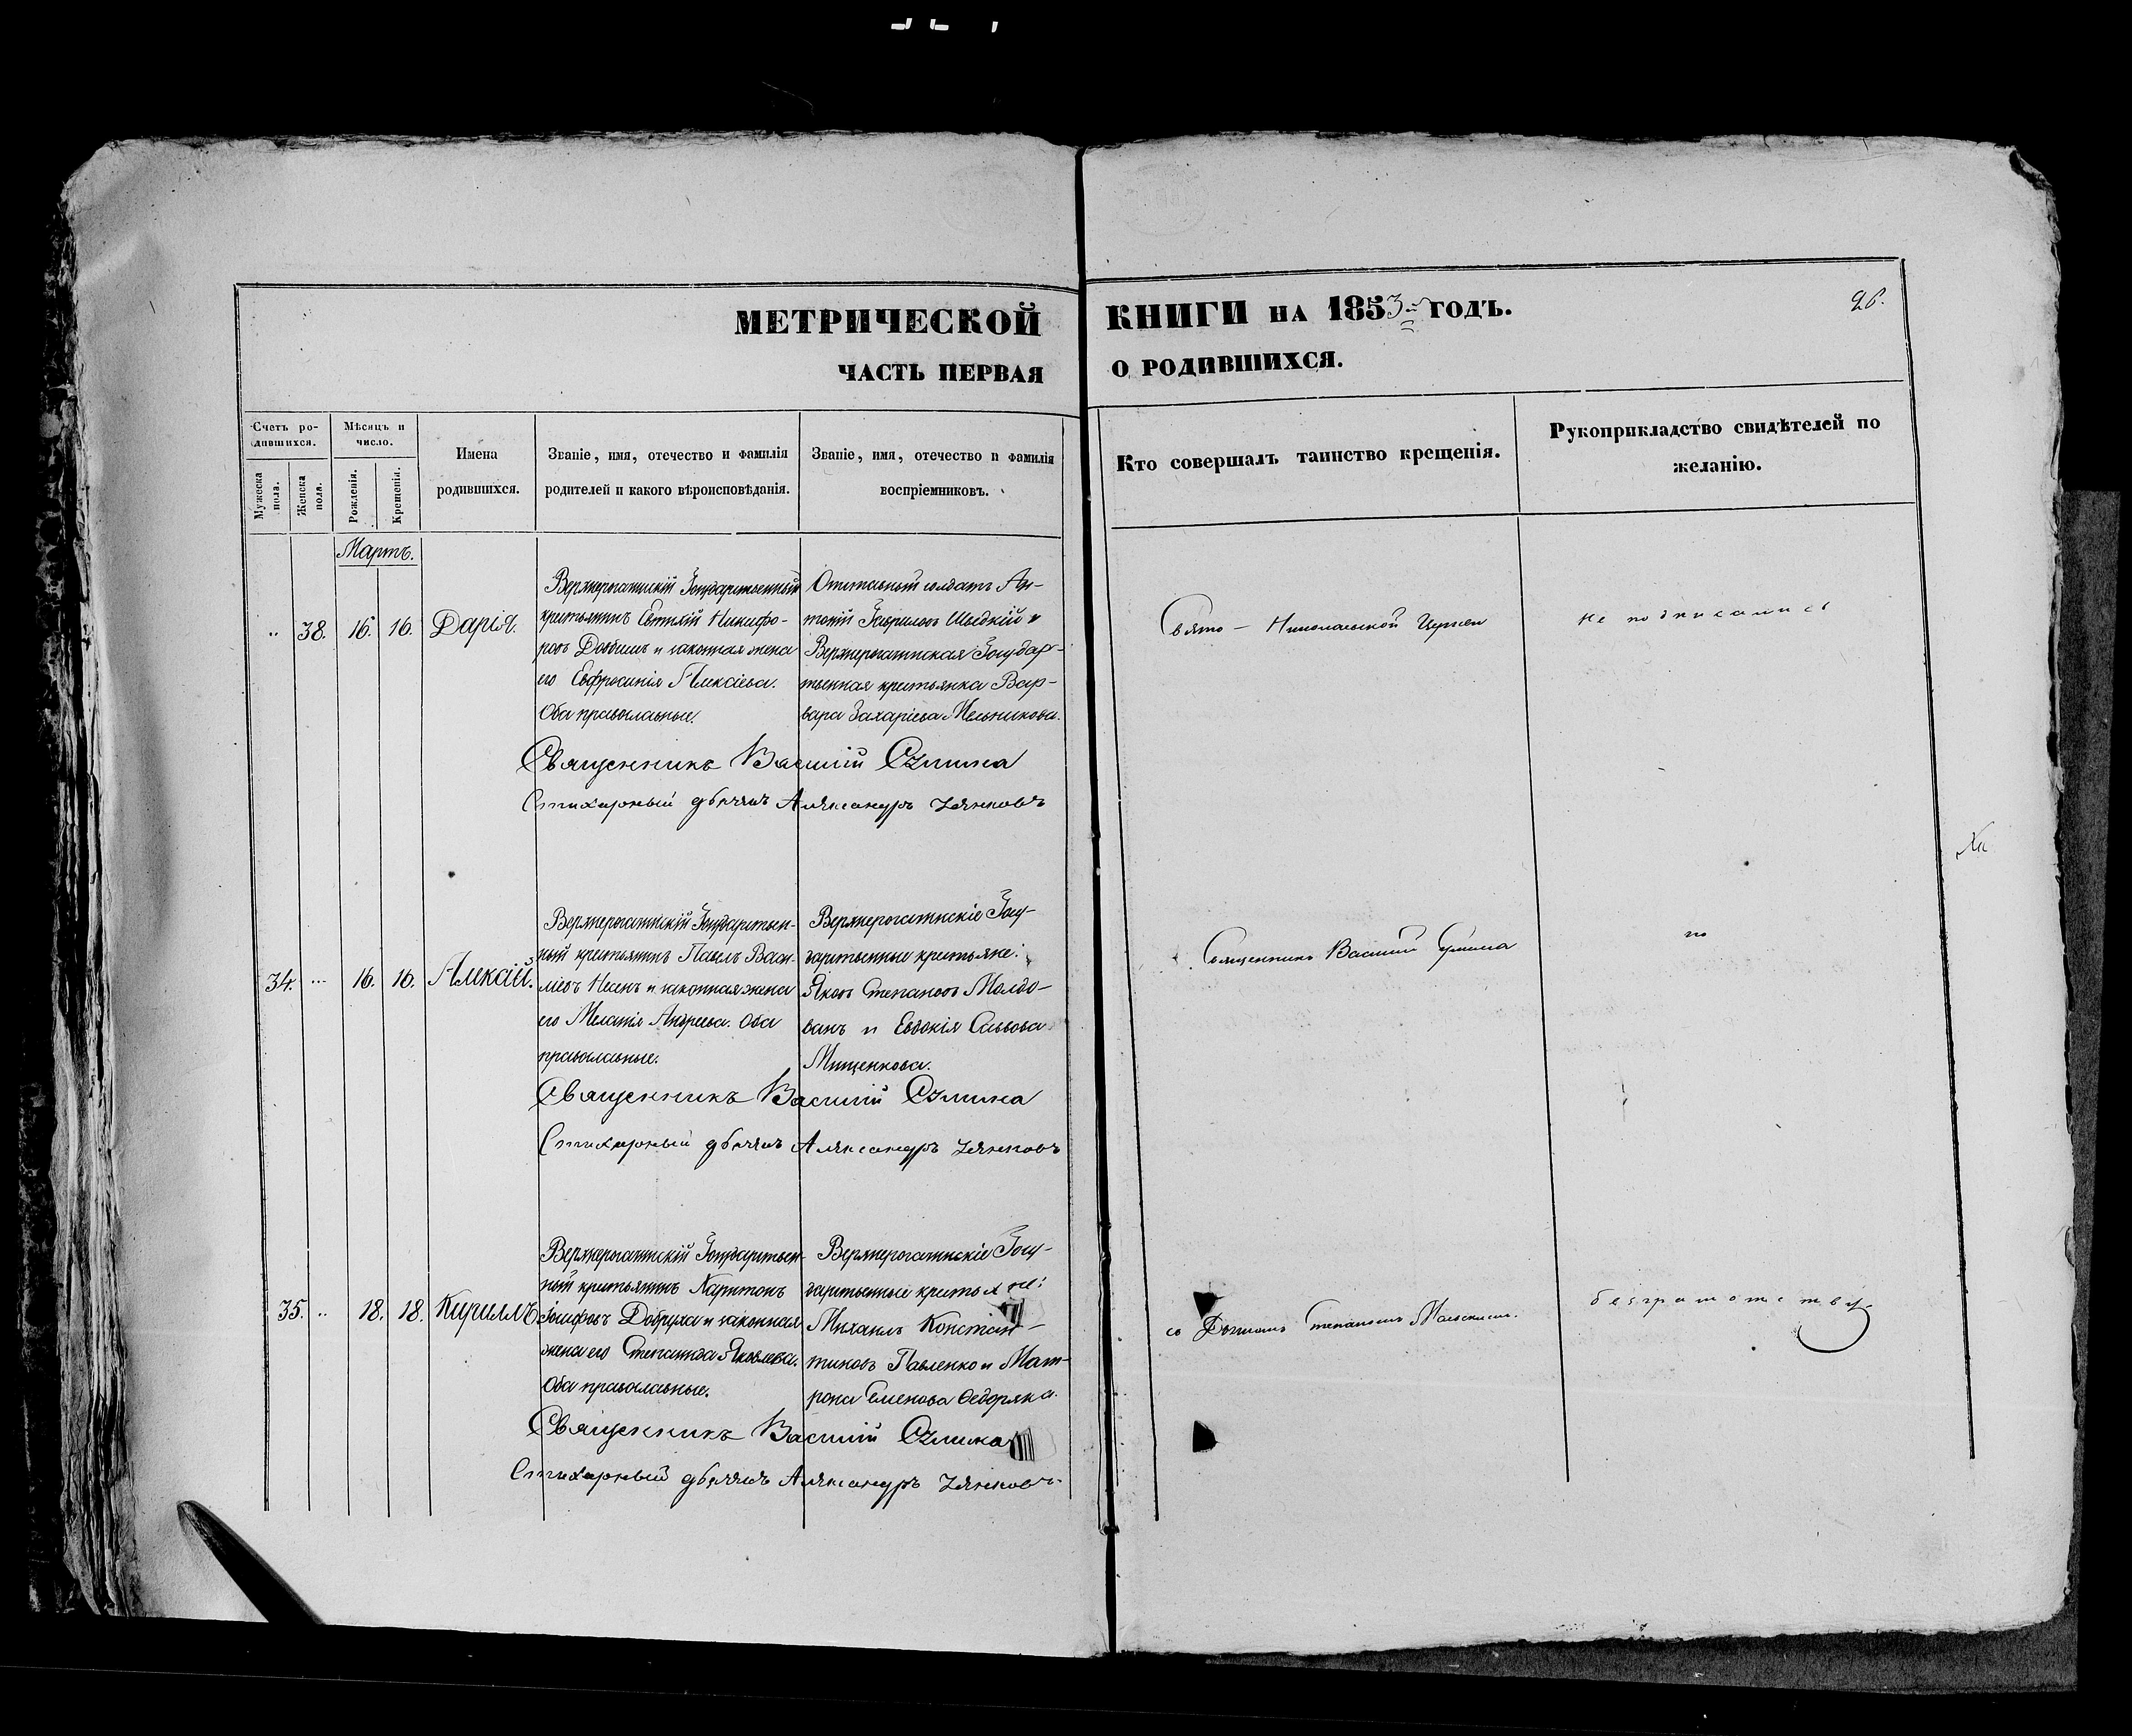 МЕТРИЧЕСКОЙ КНИГИ НА 1853 ГОДЪ.
26.
ЧАСТЬ ПЕРВАЯ О РОДИВШИХСЯ.
Счетъ ро-
дившихся.
Мужеска пола.
Женска пола.
Мѣсяцъ и
число.
Рожденія.
Крещенія.
Имена
родившихся.
Званіе, имя, отечество и фамилія
родителей и какого вѣроисповѣданія.
Званіе, имя, отечество и фамилія
воспріемниковъ.
Кто совершалъ таинство крещенія.
Рукоприкладство свидѣтелей по
желанію.
Мартъ.
38. 16. 16. Дарія.
Верхнерогатшскій Государственный
крестьянинъ Евтихій Никифо-
ровъ Довбишъ и законная жена
его Евфросинія Алексіева.
Оба православные.
Отставный солдатъ Ан-
тоній Гавриловъ Швыдкій и
Верхнерогатшская Государ-
ственная крестьянка Вар-
вара Захаріева Мельникова.
Свято – Николаевской Церкви
не подписались
Священникъ Василій
Стихарный дьячокъ Александръ
34. 16. 16. Алексій.
Верхнерогатшскій Государствен-
ный крестьянинъ Павелъ Васи-
ліевъ Несенъ и законная жена
его Меланія Андреева. Оба
православные.
Верхнерогатшскіе Госу-
дарственные крестьяне:
Яковъ Степановъ Молдо-
ванъ и Евдокія Саввова
Мищенкова.
Священникъ Василій
по
Священникъ Василій
Стихарный дьячокъ Александръ
35. 18. 18. Кириллъ.
Верхнерогатшскій Государствен-
ный крестьянинъ Харитонъ
Іосифовъ Добруха и законная
жена его Степанида Яковлева.
Оба православные.
Верхнерогатшскіе Госу-
дарственные крестьяне:
Михаилъ Констан-
тиновъ Павленко и Мат-
рона Семенова Федоряка.
со Дьячкомъ Степаномъ
безграмотству.
Священникъ Василій
Стихарный дьячокъ Александръ